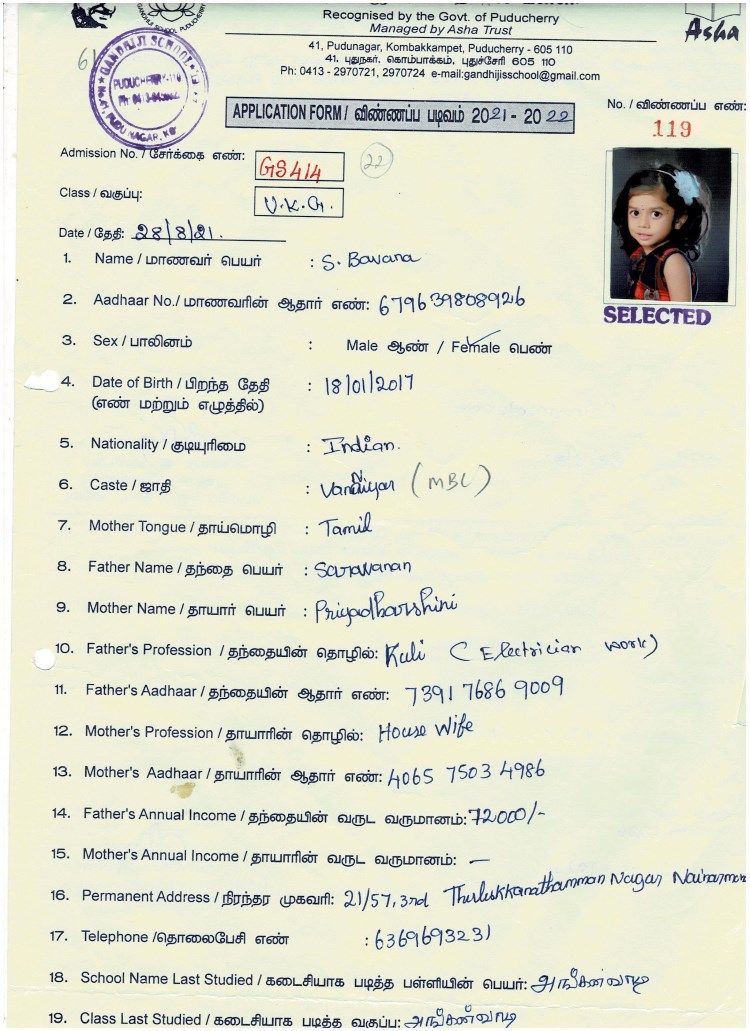 Recognised by the Govt. of Puducherry
Managed by Asha Trust
Asha
41, Pudunagar, Kombakkampet, Puducherry - 605 110
41, புதுநகர், கொம்பாக்கம், புதுச்சேரி 605 110
Ph: 0413 - 2970721, 2970724 e-mail:gandhijisschool@gmail.com
GANDHIJI SCHOOL
PUDUCHERRY-110
PUDU NAGAR,
APPLICATION FORM / விண்ணப்ப படிவம் 2021 - 2022
No. / விண்ணப்ப எண்:
119
Admission No. / சேர்க்கை எண்: GS414
22
Class / வகுப்பு: U.K.G.
Date / தேதி: 28/8/21.
SELECTED
1. Name / மாணவர் பெயர் : S. Bavana
2. Aadhaar No./ மாணவரின் ஆதார் எண்: 679639808926
3. Sex / பாலினம் : Male ஆண் / Female பெண்
4. Date of Birth / பிறந்த தேதி : 18/01/2017
(எண் மற்றும் எழுத்தில்)
5. Nationality / குடியுரிமை : Indian.
6. Caste / ஜாதி : Vanniyar (MBC)
7. Mother Tongue / தாய்மொழி : Tamil
8. Father Name / தந்தை பெயர் : Saravanan
9. Mother Name / தாயார் பெயர் : Priyadharshini
10. Father's Profession / தந்தையின் தொழில்: Kuli (Electrician work)
11. Father's Aadhaar / தந்தையின் ஆதார் எண்: 7391 7686 9009
12. Mother's Profession / தாயாரின் தொழில்: House Wife
13. Mother's Aadhaar / தாயாரின் ஆதார் எண்: 4065 7503 4986
14. Father's Annual Income / தந்தையின் வருட வருமானம்: 72000/-
15. Mother's Annual Income / தாயாரின் வருட வருமானம்: —
16. Permanent Address / நிரந்தர முகவரி: 21/57, 3rd Thulukkanathamman Nagar
17. Telephone /தொலைபேசி எண் : 6369693231
18. School Name Last Studied / கடைசியாக படித்த பள்ளியின் பெயர்: அங்கன்வாடி
19. Class Last Studied / கடைசியாக படித்த வகுப்பு: அங்கன்வாடி